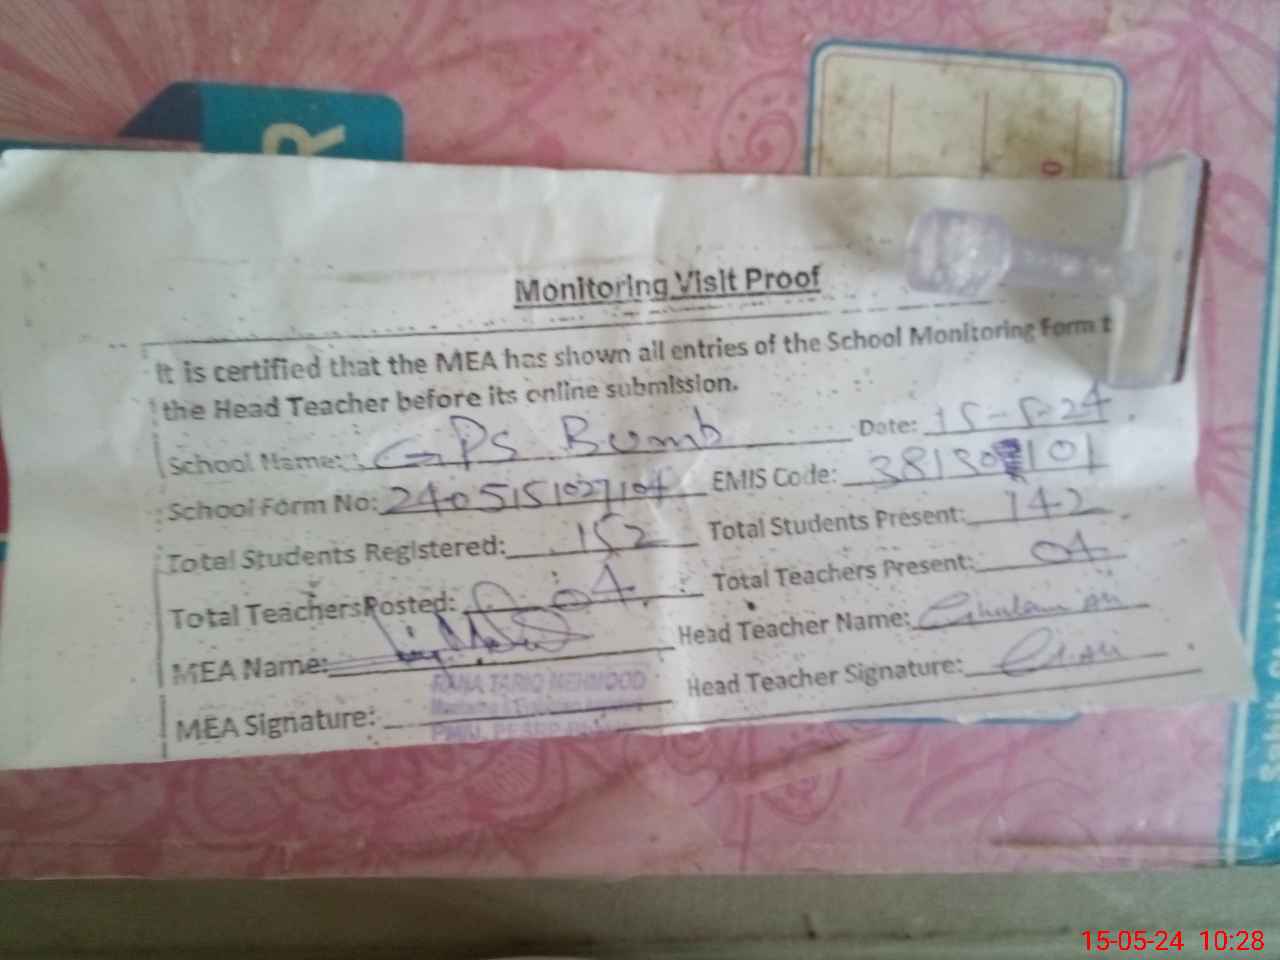 R
Monitoring Visit Proof
It is certified that the MEA has shown all entries of the School Monitoring Form t
the Head Teacher before its online submission.
School Name: GPS Bumb Date: 15-5-24
School Form No: 2405151027104 EMIS Code: 
Total Students Registered: 152 Total Students Present: 142
Total Teachers Posted: 04 Total Teachers Present: 04
MEA Name: Head Teacher Name: Ghulam Ali
MEA Signature: RANA TARIQ MEHMOOD Head Teacher Signature:
15-05-24 10:28